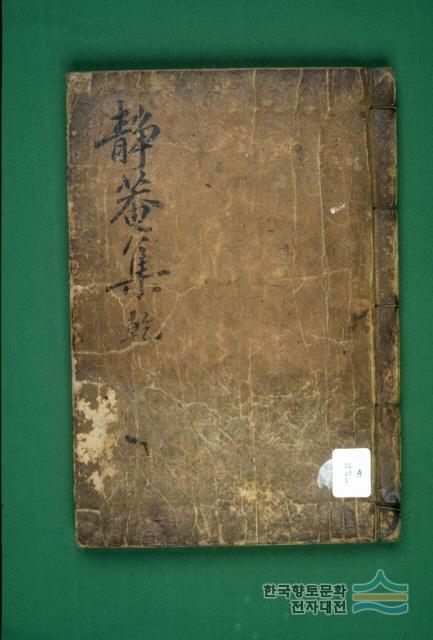 靜菴集 乾
A
한국향토문화
전자대전